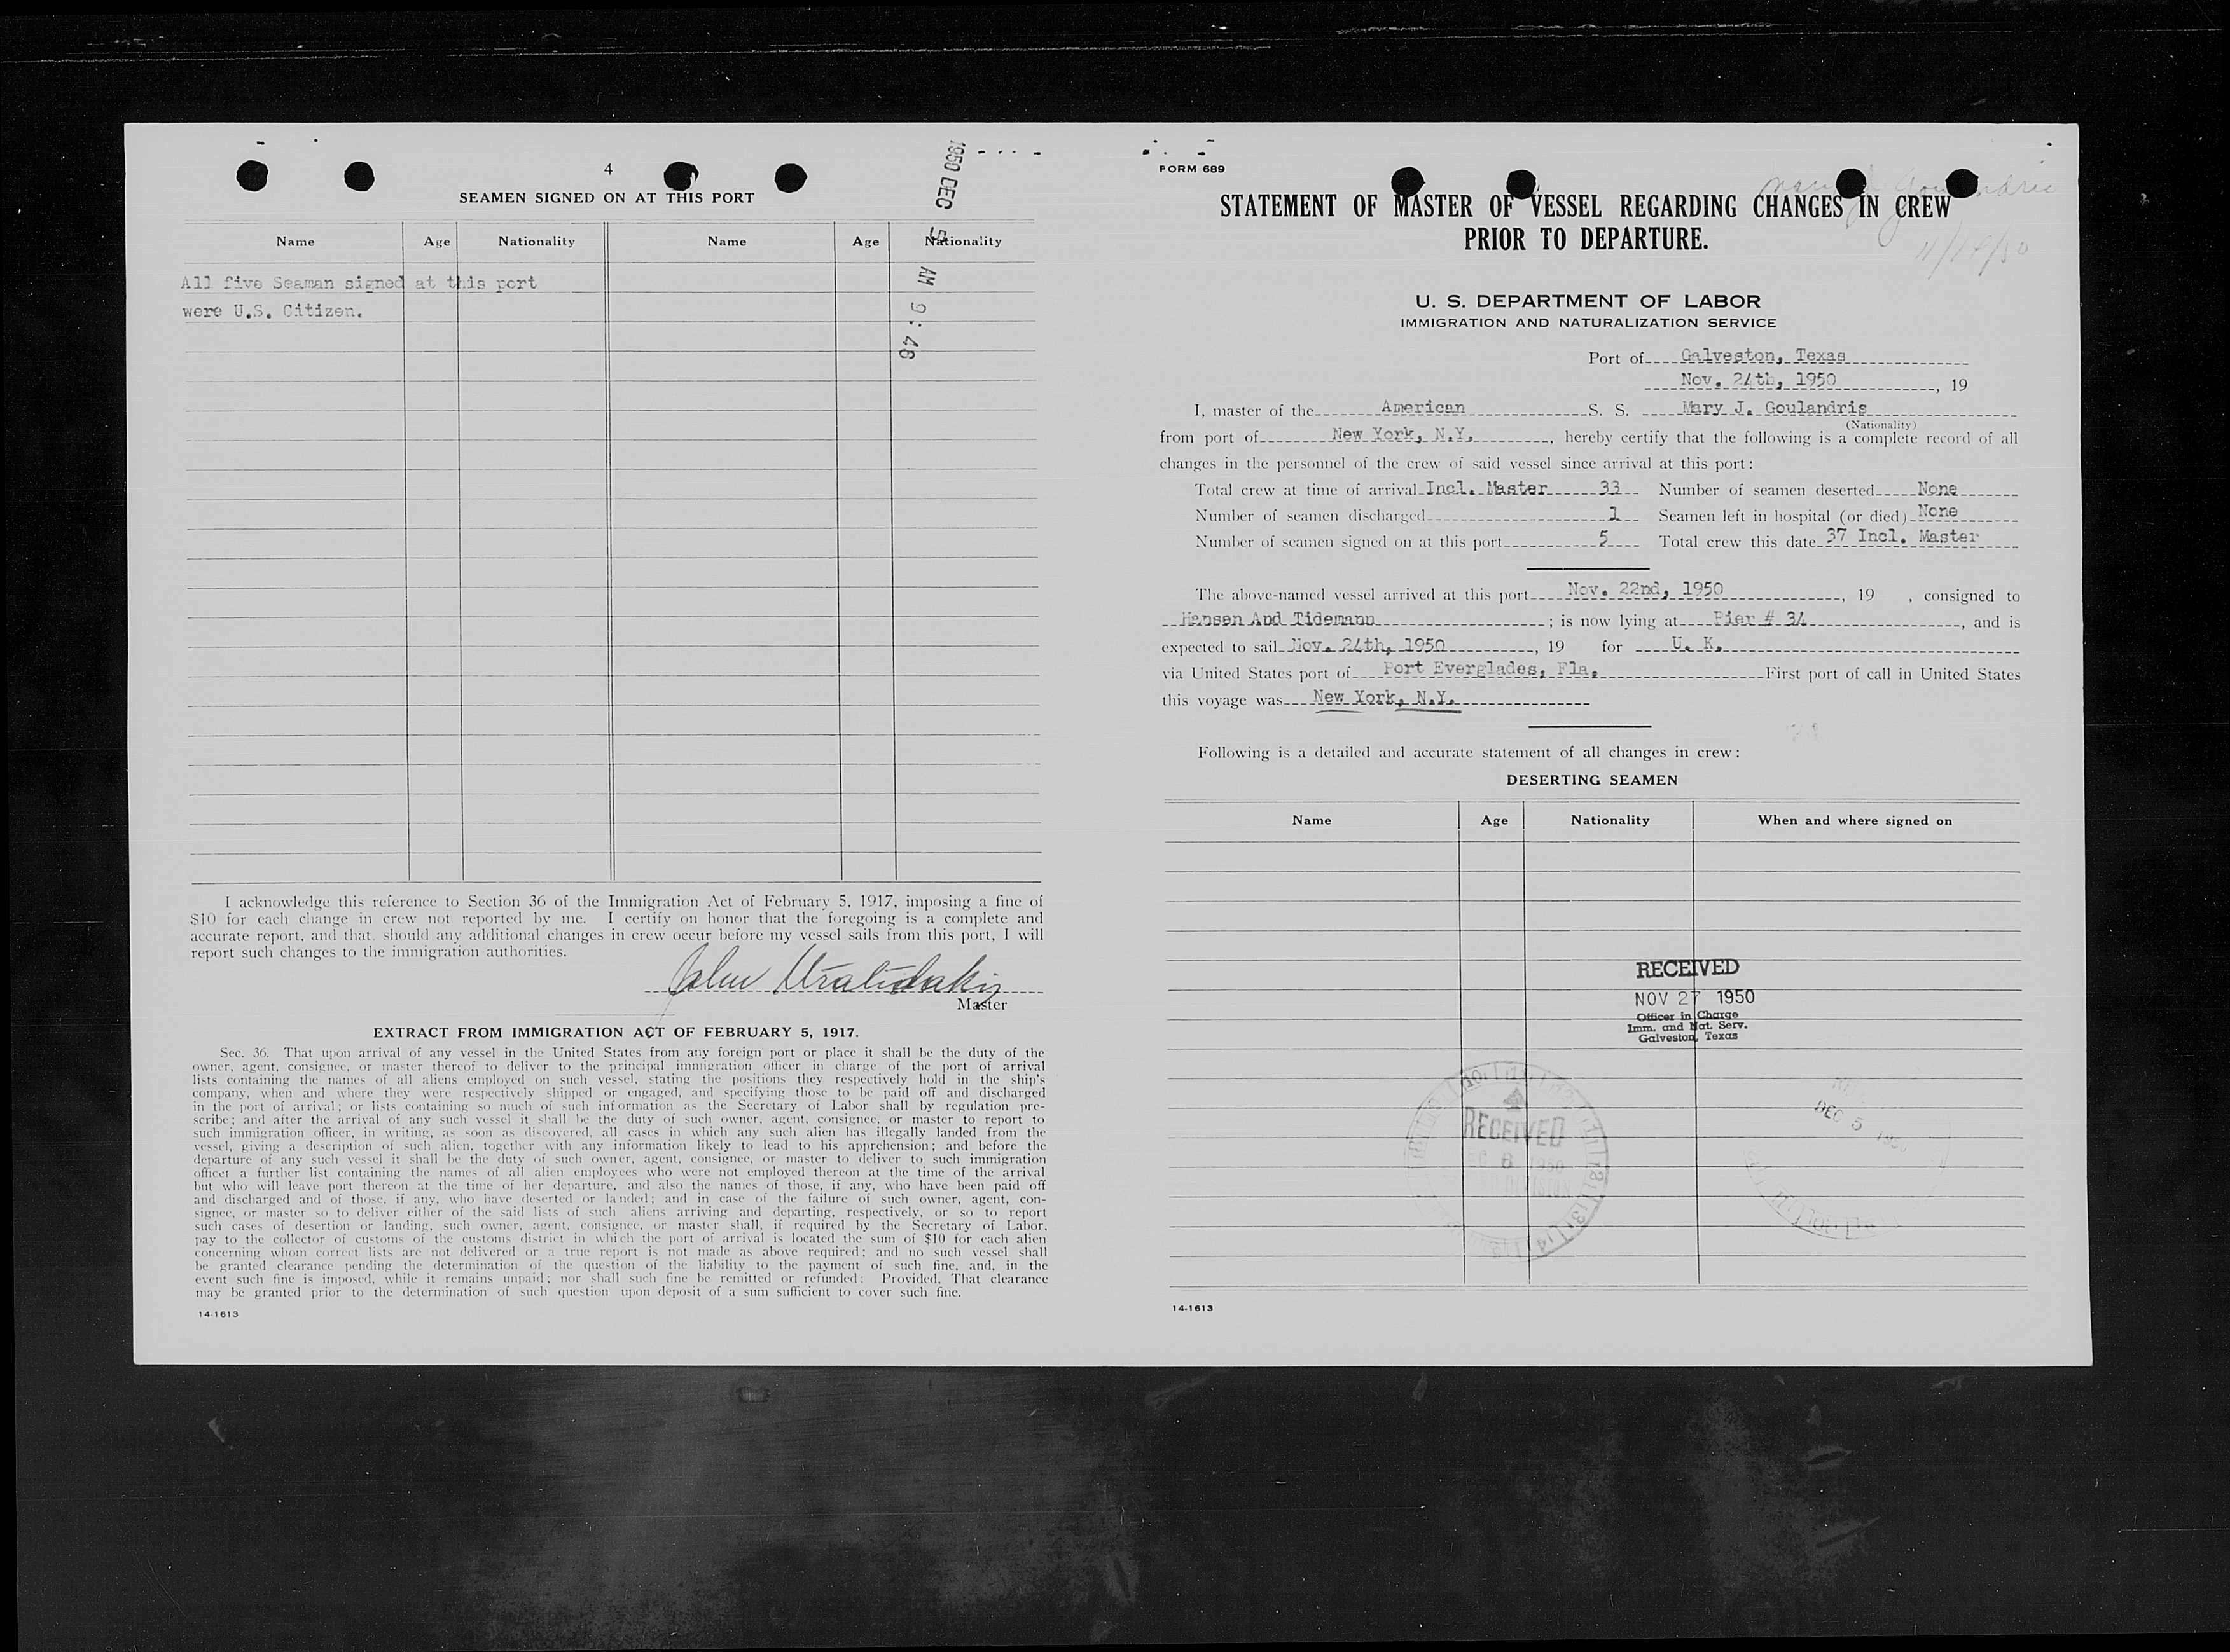 4
SEAMEN SIGNED ON AT THIS PORT
1950 DEC 5 AM 9:48
Name Age Nationality Name Age Nationality
All five Seaman signed at this port
were U.S. Citizen.
I acknowledge this reference to Section 36 of the Immigration Act of February 5, 1917, imposing a fine of
$10 for each change in crew not reported by me. I certify on honor that the foregoing is a complete and
accurate report, and that, should any additional changes in crew occur before my vessel sails from this port, I will
report such changes to the immigration authorities.
John
Master
EXTRACT FROM IMMIGRATION ACT OF FEBRUARY 5, 1917.
Sec. 36. That upon arrival of any vessel in the United States from any foreign port or place it shall be the duty of the
owner, agent, consignee, or master thereof to deliver to the principal immigration officer in charge of the port of arrival
lists containing the names of all aliens employed on such vessel, stating the positions they respectively hold in the ship's
company, when and where they were respectively shipped or engaged, and specifying those to be paid off and discharged
in the port of arrival; or lists containing so much of such information as the Secretary of Labor shall by regulation pre-
scribe; and after the arrival of any such vessel it shall be the duty of such owner, agent, consignee, or master to report to
such immigration officer, in writing, as soon as discovered, all cases in which any such alien has illegally landed from the
vessel, giving a description of such alien, together with any information likely to lead to his apprehension; and before the
departure of any such vessel it shall be the duty of such owner, agent, consignee, or master to deliver to such immigration
officer a further list containing the names of all alien employees who were not employed thereon at the time of the arrival
but who will leave port thereon at the time of her departure, and also the names of those, if any, who have been paid off
and discharged and of those, if any, who have deserted or landed; and in case of the failure of such owner, agent, con-
signee, or master so to deliver either of the said lists of such aliens arriving and departing, respectively, or so to report
such cases of desertion or landing, such owner, agent, consignee, or master shall, if required by the Secretary of Labor,
pay to the collector of customs of the customs district in which the port of arrival is located the sum of $10 for each alien
concerning whom correct lists are not delivered or a true report is not made as above required; and no such vessel shall
be granted clearance pending the determination of the question of the liability to the payment of such fine, and, in the
event such fine is imposed, while it remains unpaid; nor shall such fine be remitted or refunded: Provided, That clearance
may be granted prior to the determination of such question upon deposit of a sum sufficient to cover such fine.
14-1613
FORM 689
STATEMENT OF MASTER OF VESSEL REGARDING CHANGES IN CREW
PRIOR TO DEPARTURE.
U. S. DEPARTMENT OF LABOR
IMMIGRATION AND NATURALIZATION SERVICE
Port of Galveston, Texas
Nov. 24th, 1950, 19
I, master of the American S. S. Mary J. Goulandris
(Nationality)
from port of New York, N.Y., hereby certify that the following is a complete record of all
changes in the personnel of the crew of said vessel since arrival at this port:
Total crew at time of arrival Incl. Master 33 Number of seamen deserted None
Number of seamen discharged 1 Seamen left in hospital (or died) None
Number of seamen signed on at this port 5 Total crew this date 37 Incl. Master
The above-named vessel arrived at this port Nov. 22nd, 1950, 19 , consigned to
Hansen And Tidemann; is now lying at Pier # 34, and is
expected to sail Nov. 24th, 1950, 19 for U. K.
via United States port of Port Everglades, Fla. First port of call in United States
this voyage was New York, N.Y.
Following is a detailed and accurate statement of all changes in crew:
DESERTING SEAMEN
Name Age Nationality When and where signed on
RECEIVED
NOV 27 1950
Officer in Charge
Imm. and Nat. Serv.
Galveston, Texas
RECEIVED
DEC 5 1950
14-1613